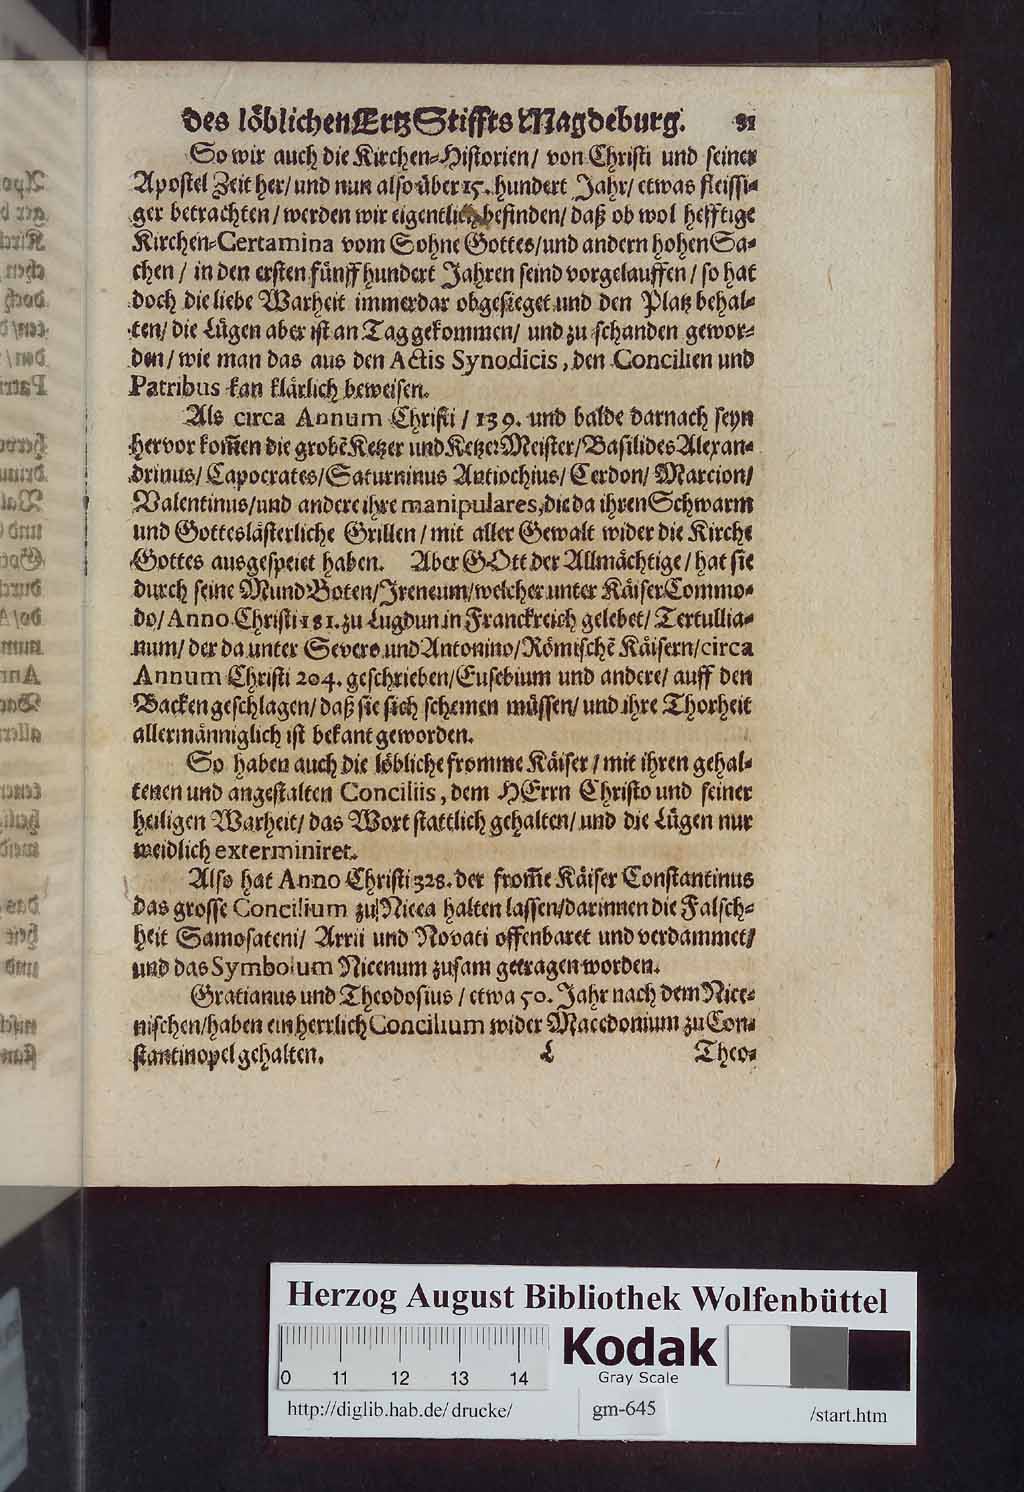 des löblichen Ertz Stiffts Magdeburg. 81
So wir auch die Kirchen-Historien/ von Christi und seiner
Apostel Zeit her/ und nun also über 15. hundert Jahr/ etwas fleissi-
ger betrachten/ werden wir eigentlich befinden/ daß ob wol hefftige
Kirchen-Certamina vom Sohne Gottes/ und andern hohen Sa-
chen/ in den ersten fünff hundert Jahren seind vorgelauffen/ so hat
doch die liebe Warheit immerdar obgesieget und den Platz behal-
ten/ die Lügen aber ist an Tag gekommen/ und zu schanden gewor-
den/ wie man das aus den Actis Synodicis, den Concilien und
Patribus kan klärlich beweisen.
Als circa Annum Christi/ 139. und balde darnach seyn
hervor kom̃en die grobẽ Ketzer und Ketzer Meister/ Basilides Alexan-
drinus/ Capocrates/ Saturninus Antiochius/ Cerdon/ Marcion/
Valentinus/ und andere ihre manipulares, die da ihren Schwarm
und Gotteslästerliche Grillen/ mit aller Gewalt wider die Kirche
Gottes ausgespeiet haben. Aber GOtt der Allmächtige/ hat sie
durch seine Mund Boten/ Ireneum/ welcher unter Käiser Commo-
do/ Anno Christi 181. zu Lugdun in Franckreich gelebet/ Tertullia-
num/ der da unter Severo und Antonino/ Römischẽ Käisern/ circa
Annum Christi 204. geschrieben/ Eusebium und andere/ auff den
Backen geschlagen/ daß sie sich schemen müssen/ und ihre Thorheit
allermänniglich ist bekant geworden.
So haben auch die löbliche fromme Käiser/ mit ihren gehal-
tenen und angestalten Conciliis, dem HErrn Christo und seiner
heiligen Warheit/ das Wort stattlich gehalten/ und die Lügen nur
weidlich exterminiret.
Also hat Anno Christi 328. der from̃e Käiser Constantinus
das grosse Concilium zu Nicea halten lassen/ darinnen die Falsch-
heit Samosateni/ Arrii und Novati offenbaret und verdammet/
und das Symbolum Nicenum zusam getragen worden.
Gratianus und Theodosius/ etwa 50. Jahr nach dem Nice-
nischen/ haben ein herrlich Concilium wider Macedonium zu Con-
stantinopel gehalten. L Theo-
Herzog August Bibliothek Wolfenbüttel
Kodak
Gray Scale
0 11 12 13 14
http://diglib.hab.de/drucke/ gm-645 /start.htm